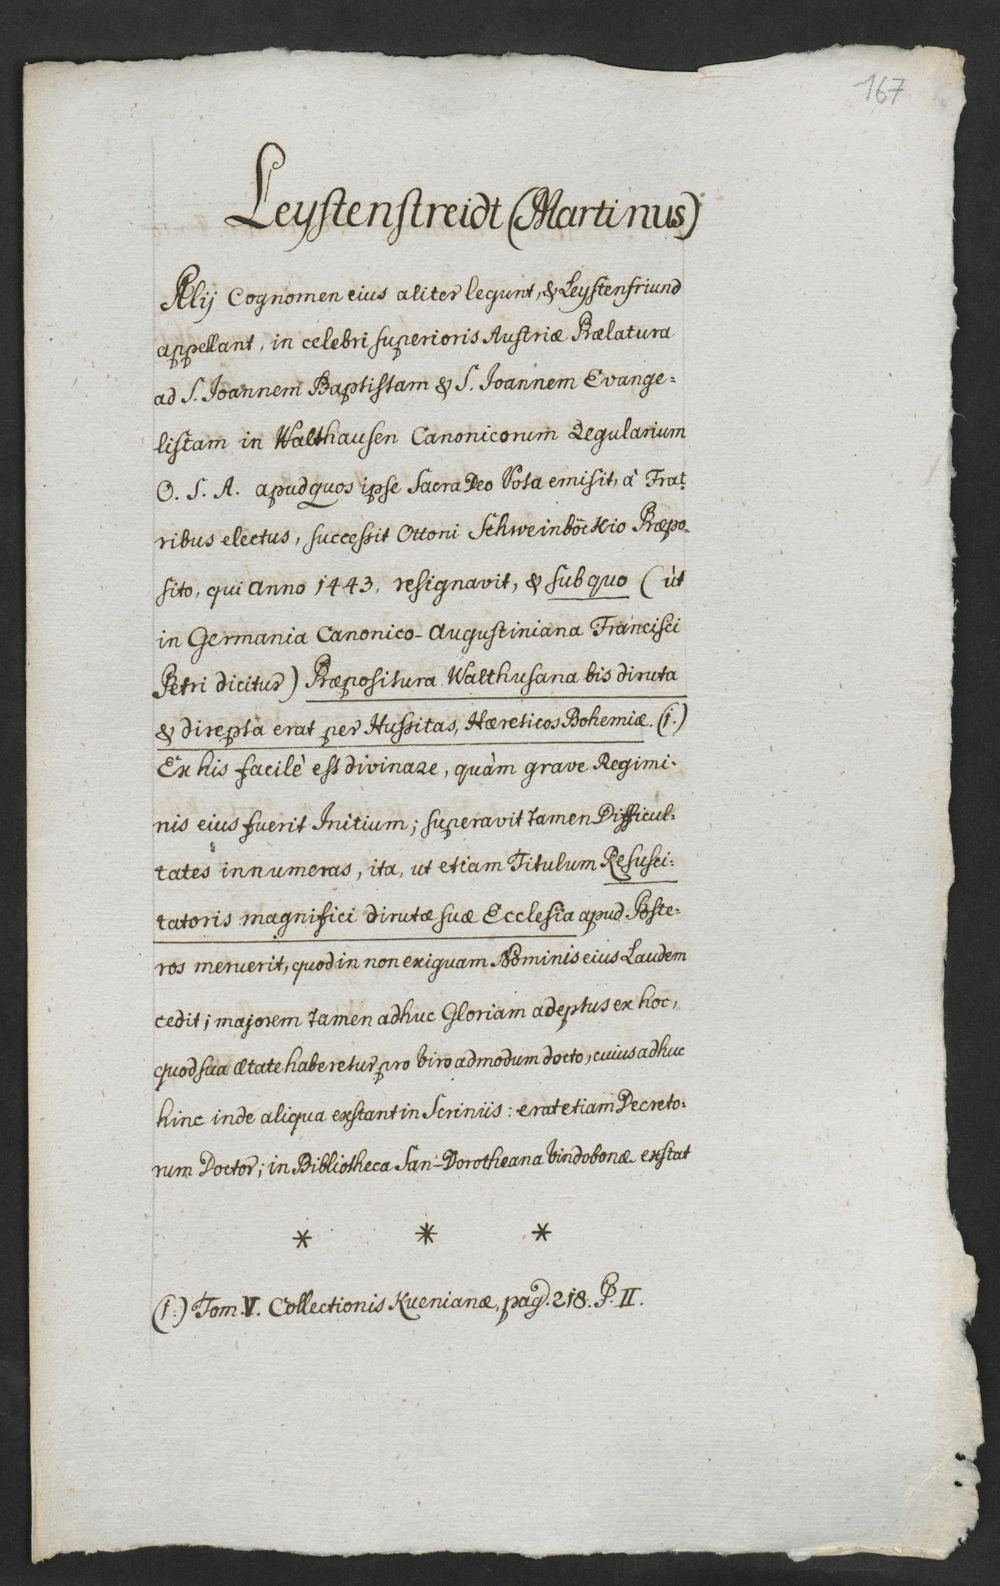 167
Leystenstreidt (Martinus)
Alij Cognomen eius aliter legunt, & Leystenfriund
appellant, in celebri superioris Austriæ Prælatura
ad S. Joannem Baptistam & S. Joannem Evange=
listam in Walthausen Canonicorum Regularium
O. S. A. apud quos ipse Sacra Deo Vota emisit, à Frat
ribus electus, successit Ottoni Schweinböckio Præpo-
sito, qui Anno 1443. resignavit, & sub quo (ùt
in Germania Canonico-Augustiniana Francisci
Petri dicitur) Præpositura Walthusana bis diruta
& direpta erat per Hussitas, Hæreticos Bohemiæ. (1.)
Ex his facilè est divinare, quàm grave Regimi-
nis eius fuerit Initium; superavit tamen Difficul-
tates innumeras, ita, ut etiam Titulum Resusci-
tatoris magnifici dirutæ suæ Ecclesia apud Poste-
ros meruerit, quod in non exiguam Nominis eius Laudem
cedit; majorem tamen adhuc Gloriam adeptus ex hoc,
quod sua ætate haberetur pro Viro admodum docto, cuius adhuc
hinc inde aliqua exstant in Scriniis: erat etiam Decreto-
rum Doctor; in Bibliotheca San-Dorotheana Vindobonæ exstat
* * *
(1.) Tom. V. Collectionis Kuenianæ, pag. 218. P. II.